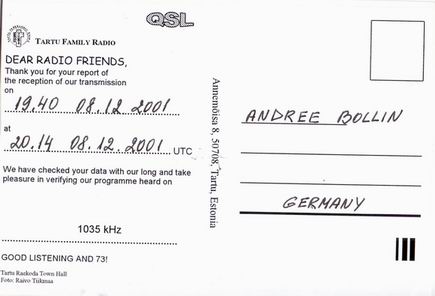 QSL
TARTU FAMILY RADIO
DEAR RADIO FRIENDS,
Thank you for your report of
the reception of our transmission
on
19.40 08.12 2001
at
20.14 08.12.2001 UTC
We have checked your data with our long and take
pleasure in verifying our programme heard on
1035 kHz
GOOD LISTENING AND 73!
Tartu Raekoda Town Hall
Foto: Raivo Tiikmaa
Annemõisa 8, 50708, Tartu, Estonia
ANDREE BOLLIN
GERMANY